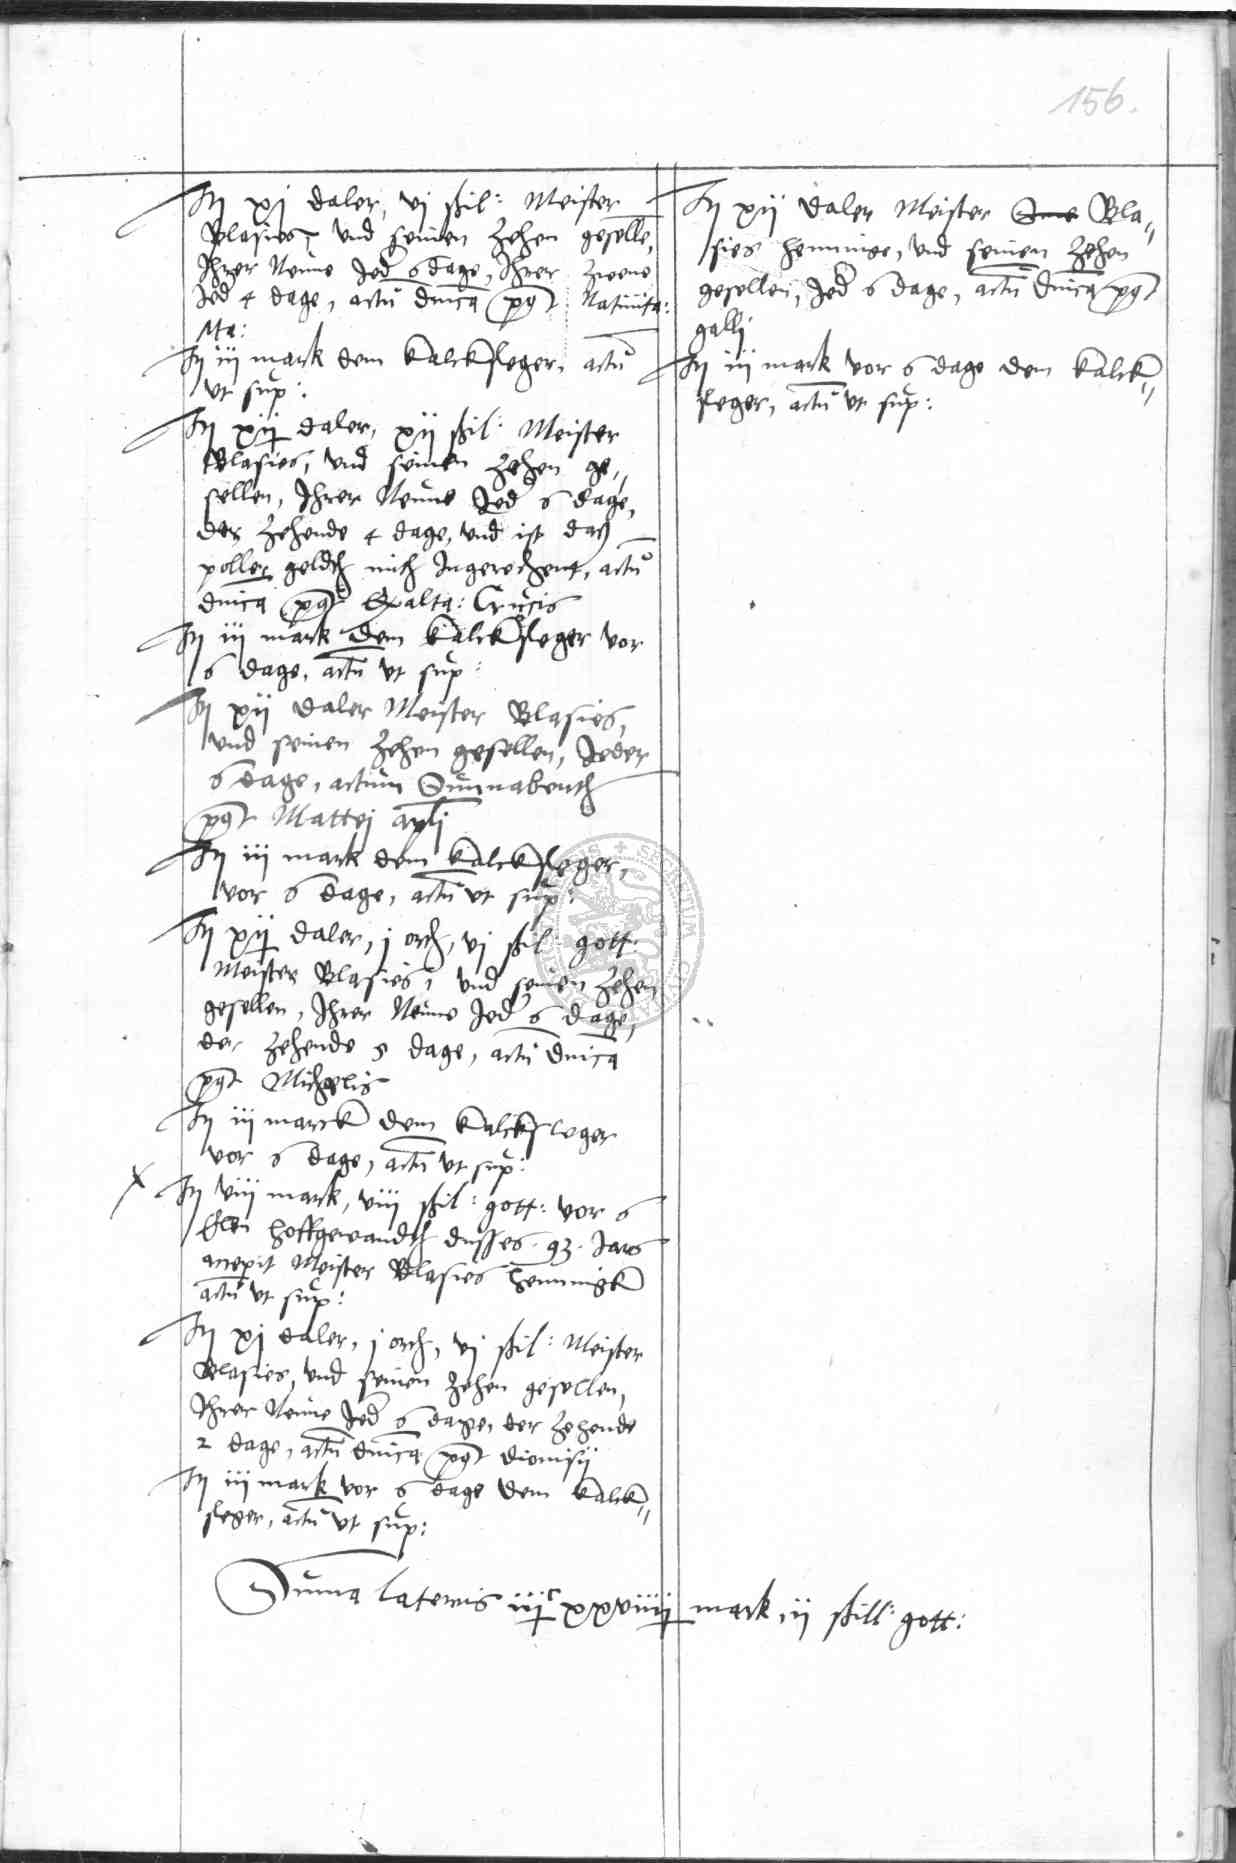 156.
It xj daler, vj ßhil: Meister
Blasies, vnd seinen zehen geselle,
Ihrer Neune Jed 6 dage, Ihrer zweene
Jed 4 dage, actu dnica post Natiuita:
Ma:
It iij mark dem kalckfleger, actu
vt sup:
It xij daler, xij ßhil: Meister
Blasies, vnd seinen zehen ge„
sellen, Ihrer Neune Jed 6 dage,
der zehende 4 dage, vnd ist das
poller geldth mith Ingerechent, actu
dnica post Exalta: Crucis
It iij mark dem kalckfleger vor
6 dage, actu vt sup:
It xij daler Meister Blasies,
vnd seinen zehen gesellen, Jeder
6 dage, actum Sunnabenth
post Mattej apli
It iij mark dem kalckfleger,
vor 6 dage, actu vt sup:
It xij daler, j orth, vj ßhil: gott:
Meister Blasies, vnd seinen zehen
gesellen, Ihrer Neune Jed 6 dage,
der zehende 5 dage, actu dnica
post Michaelis
It iij marck dem kalckfleger
vor 6 dage, actu vt sup:
It viij mark, viij ßhil: gott: vor 6
Elen hoffgewandth dusses 93. Jars
accepit Meister Blasies Henningk
actu vt sup:
It xj daler, j orth, vj ßhil: Meister
Blasies, vnd seinen zehen gesellen,
Ihrer Neune Jed 6 dage, der zehende
2 dage, actu dnica post dionisij
It iij mark vor 6 dage dem kalck„
fleger, actu vt sup:
It xij daler Meister Bla„
sies Henninge, vnd seinen zehen
gesellen, Jed 6 dage, actu dnica post
galli
It iij mark vor 6 dage dem kalck„
fleger, actu vt sup:
Suma lateris iiijc xxviiij mark, ij ßhill: gott: